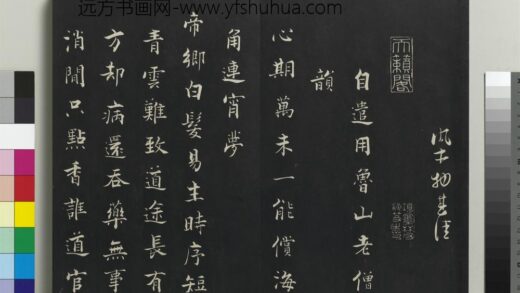 远方书画网-www.yfshuhua.com
天籟閣
自遣用魯山老僧
韻
心期萬未一能償海
角連宵夢
帝鄉白髮易生時序短
青雲難致道途長有
方却病還吞藥無事
消閒只點香誰道官